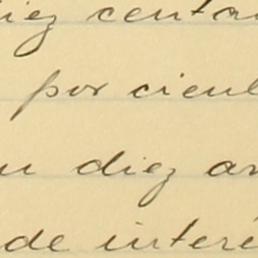 diez centa
por cient
diez a
de interé